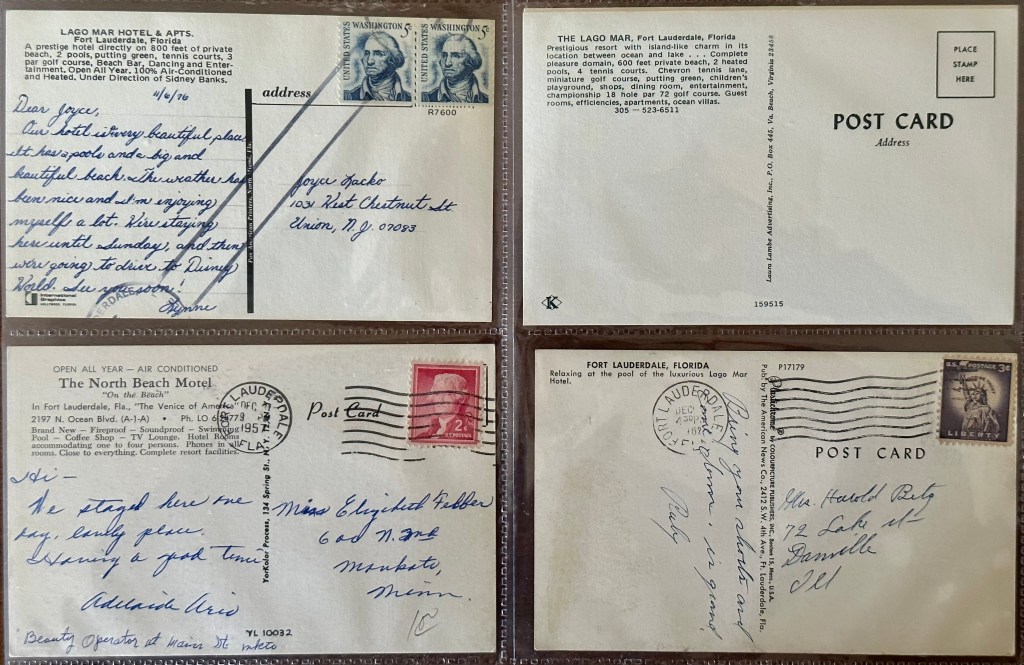 LAGO MAR HOTEL & APTS.
Fort Lauderdale, Florida
A prestige hotel directly on 800 feet of private
beach, 2 pools, putting green, tennis courts, 3
par golf course, Beach Bar, Dancing and Enter-
tainment, Open All Year. 100% Air-Conditioned
and Heated. Under Direction of Sidney Banks.
11/6/76
Dear Joyce,
Our hotel is very beautiful place
It has 2 pools and a big and
beautiful beach. The weather has
been nice and I'm enjoying
myself a lot. We're staying
here until Sunday, and then
we're going to drive to Disney
World. See you soon!
Lynne
International
Graphics
HOLLYWOOD, FLORIDA
ERDALE
address
UNITED STATES WASHINGTON 5c
UNITED STATES WASHINGTON 5c
R7600
Joyce Lacko
1031 West Chestnut St.
Union, N.J. 07083
THE LAGO MAR, Fort Lauderdale, Florida
Prestigious resort with island-like charm in its
location between ocean and lake . . . Complete
pleasure domain, 600 feet private beach, 2 heated
pools, 4 tennis courts. Chevron tennis lane,
miniature golf course, putting green, children's
playground, shops, dining room, entertainment,
championship 18 hole par 72 golf course. Guest
rooms, efficiencies, apartments, ocean villas.
305 — 523-6511
Laura Lambe Advertising, Inc., P.O. Box 445, Va. Beach, Virginia 23458
PLACE
STAMP
HERE
POST CARD
Address
K
159515
OPEN ALL YEAR — AIR CONDITIONED
The North Beach Motel
"On the Beach"
In Fort Lauderdale, Fla., "The Venice of America"
2197 N. Ocean Blvd. (A-1-A) Ph. LO
Brand New — Fireproof — Soundproof — Swimming
Pool — Coffee Shop — TV Lounge. Hotel Rooms
accommodating one to four persons. Phones in all
rooms. Close to everything. Complete resort facilities.
Hi –
We stayed here one
day, lovely place.
Having a good time
Adelaide
Beauty Operator at Main St. mkto
YL 10032
YorKolor Process, 134 Spring St., N.Y.
LAUDERDALE
DEC
1957
FLA.
Post Card
2c
U.S. POSTAGE
Miss Elizabeth
600 N. 2nd
Mankato,
Minn.
10
FORT LAUDERDALE, FLORIDA
Relaxing at the pool of the luxurious Lago Mar
Hotel.
P17179
FORT LAUDERDALE
DEC
Bring your shorts and
come down, is grand
Ruby
Pub. by The American News Co., 2412 S.W. 4th Ave., Ft. Lauderdale, Fla.
BY COLOURPICTURE PUBLISHERS, INC. Boston 15, Mass. U.S.A.
U.S. POSTAGE 3c
LIBERTY
POST CARD
Mrs. Harold Betz
72 Lake st
Danville
Ill